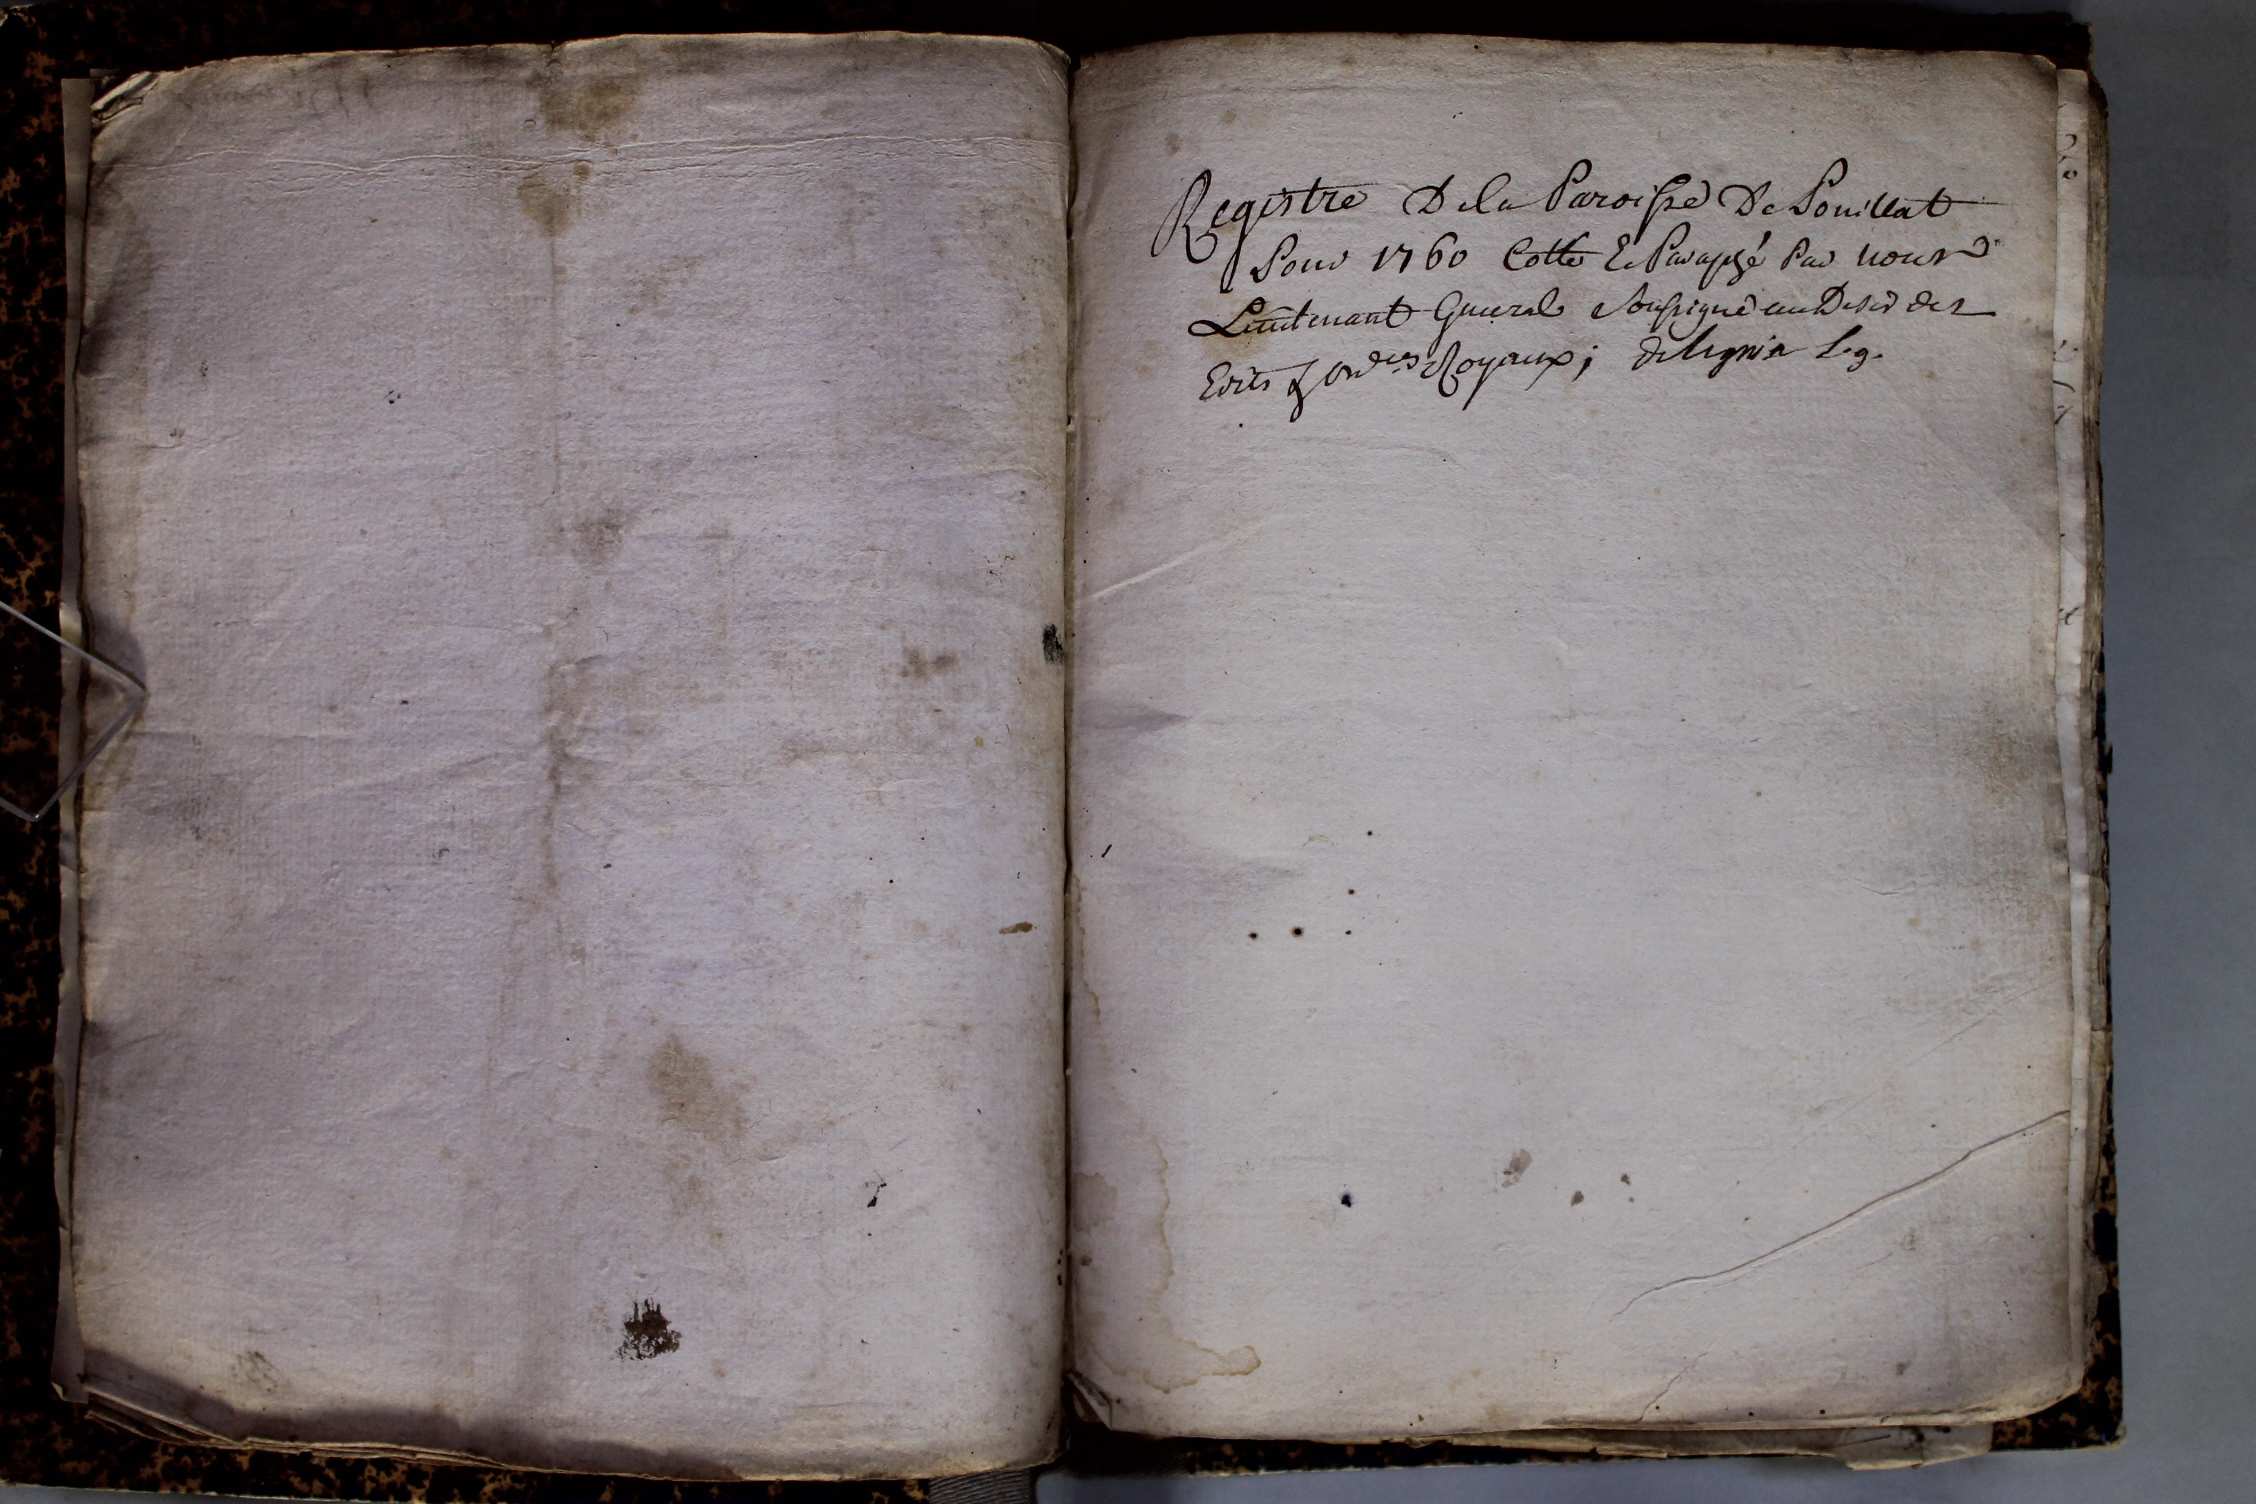 Registre De la Paroisse De Pouillat
Pour 1760 Cotté Et Paraphé Par nous
Lieutenant General Soussigné au Desir des
Edits & ordces Royaux; Delignia L. g.